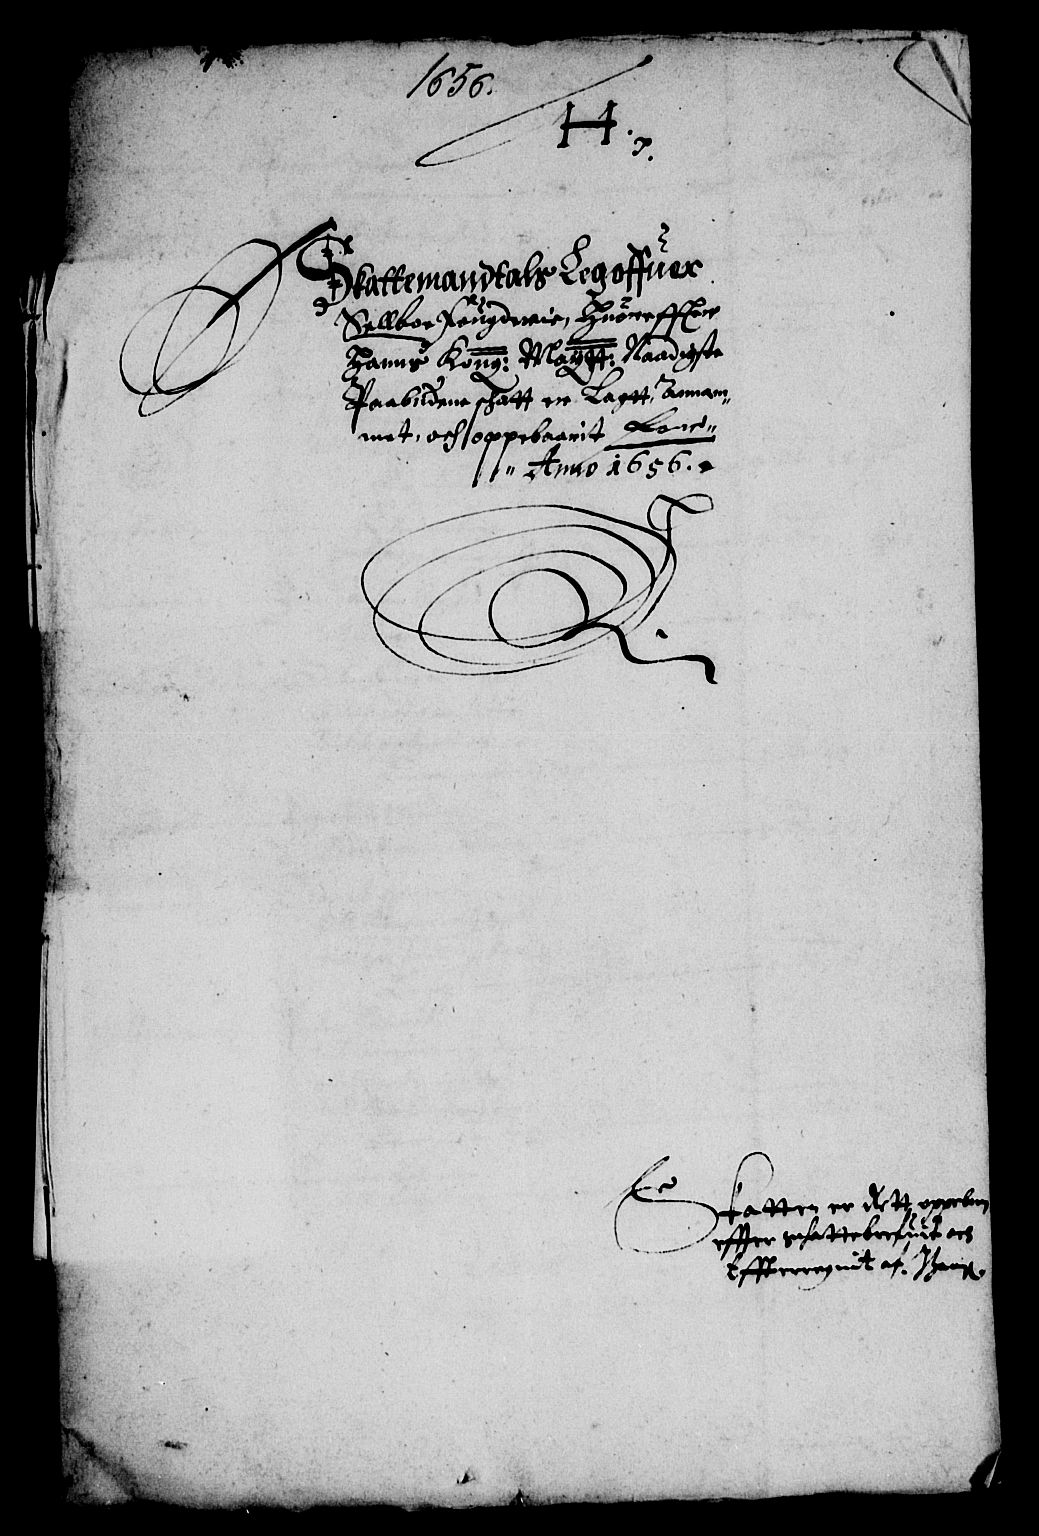 1656.
H.
Skattemandtals Leg offuer
Selboe fougderie, Huoreffter
Hanns Kong: Maÿtt: Naadigste
Paabudene schatt er Lagt, Annam„
met, och oppebaarit
„ Anno 1656.
Skatten er Rett oppeburen
effter schattebrefuit och
Effterregnit af.